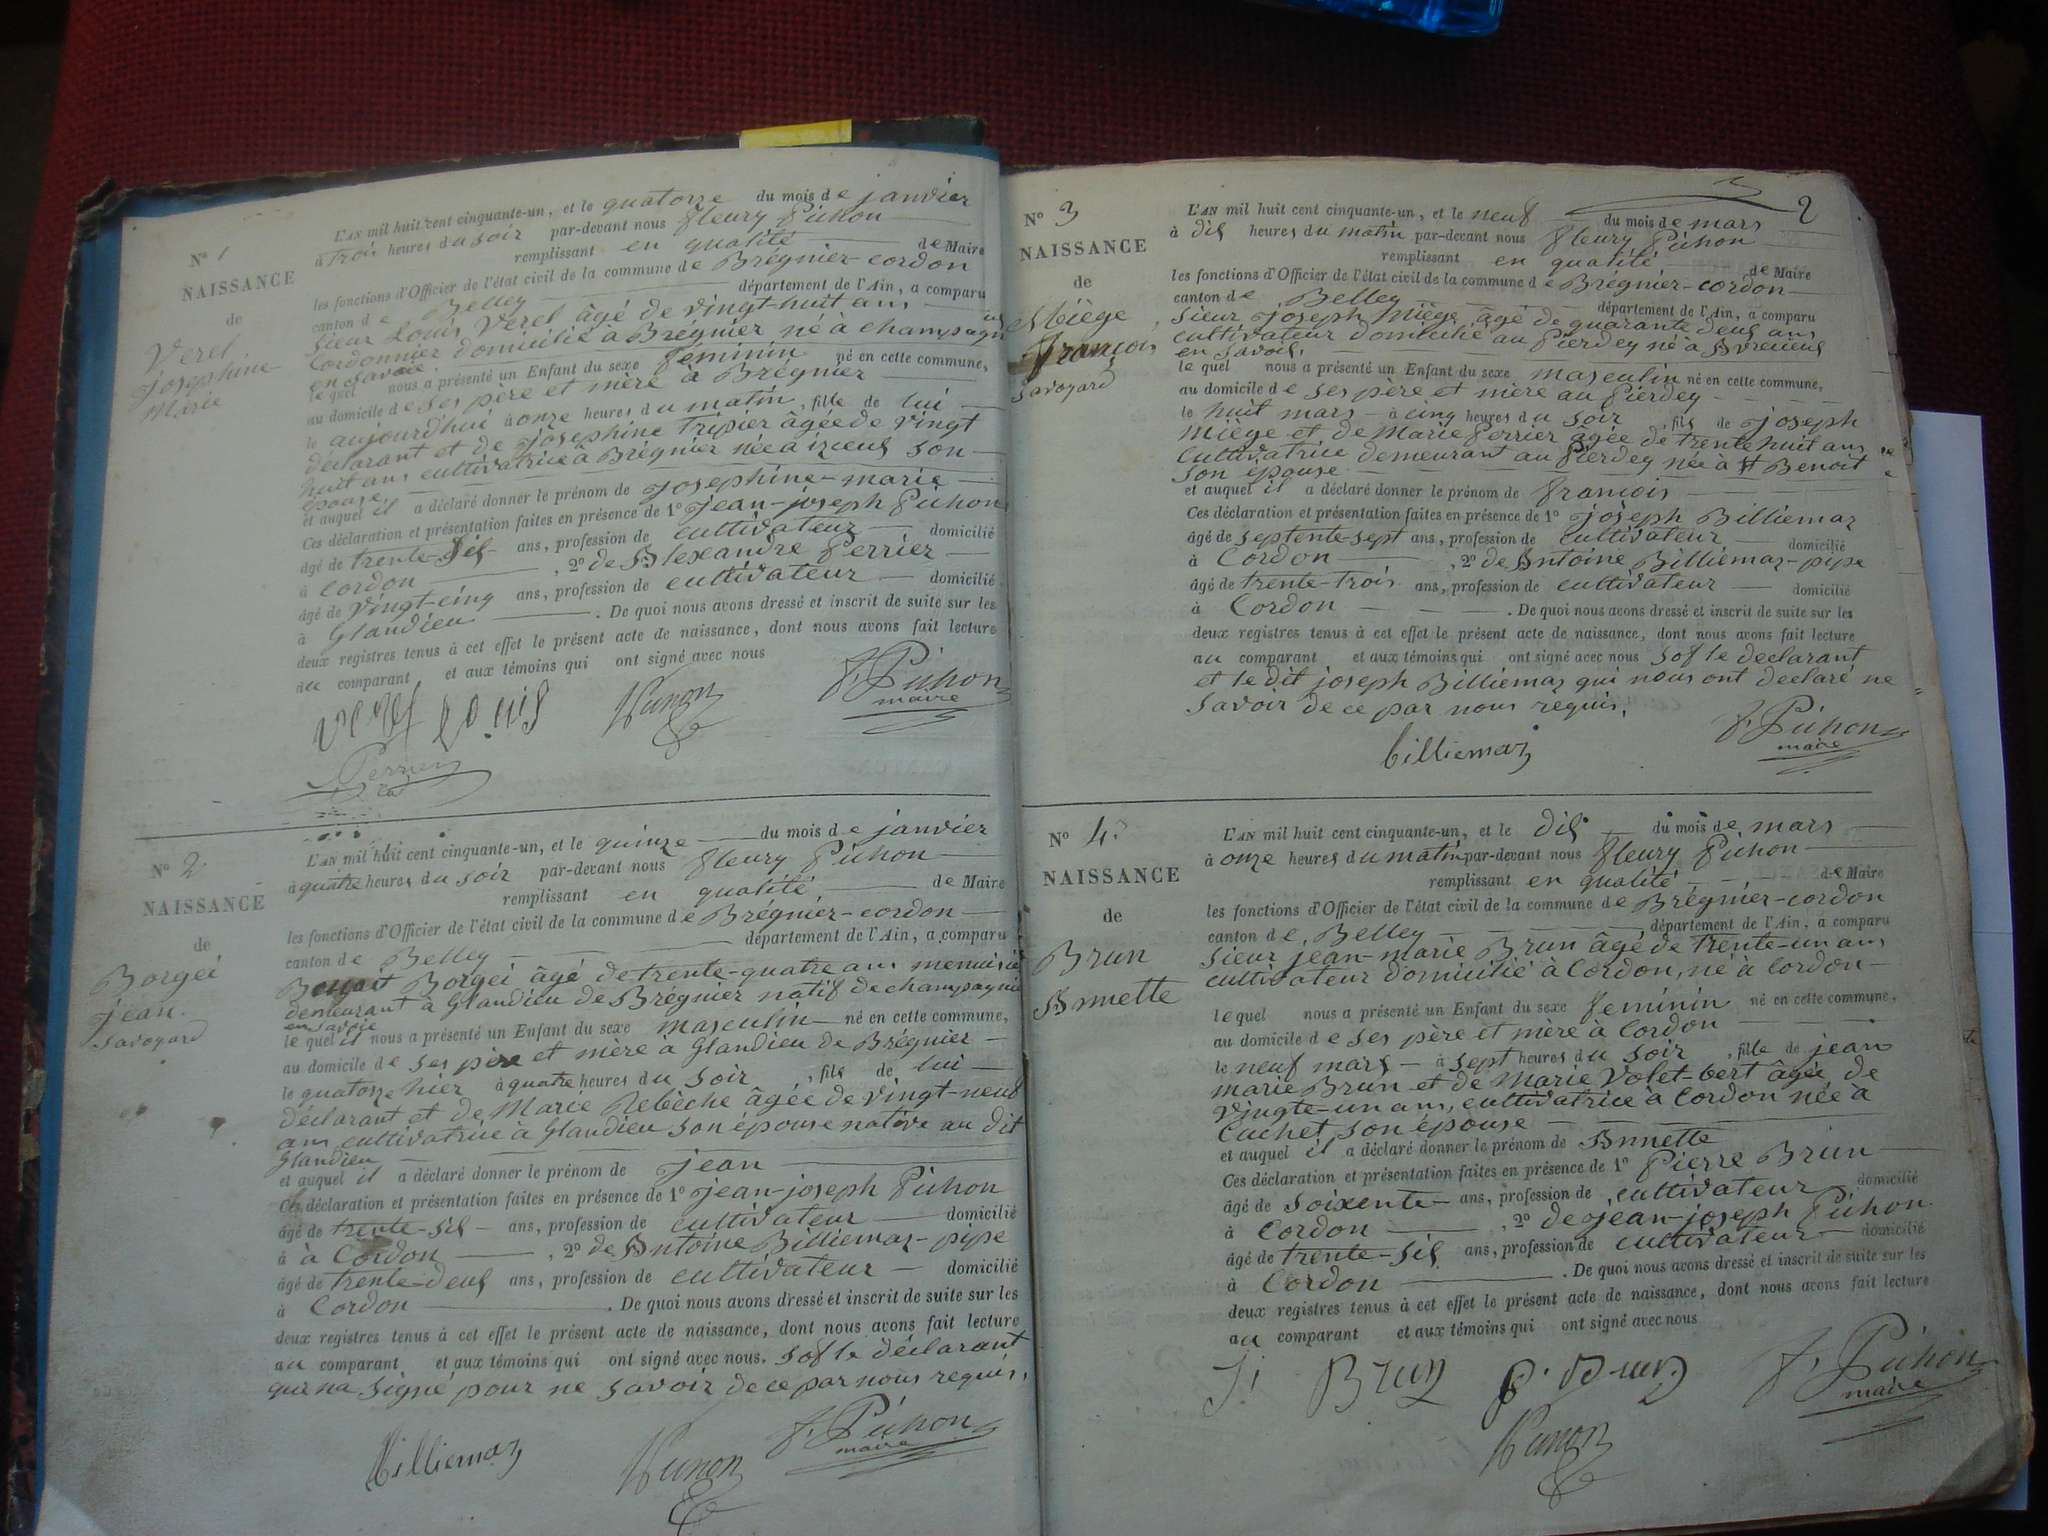 N° 1
NAISSANCE
de
Verel
Josephine-
Marie
L'AN mil huit cent cinquante-un, et le quatorze du mois de janvier
à trois heures du soir par-devant nous fleury Pichon
remplissant en qualité de Maire
les fonctions d'Officier de l'état civil de la commune de Brégnier-cordon
canton de Belley département de l'Ain, a comparu
sieur Louis Verel âgé de vingt-huit ans
Cordonnier domicilié à Bregnier né à champagn
en savoie
le quel nous a présenté un Enfant du sexe feminin né en cette commune,
au domicile de ses père et mère à Brégnier
le aujourd'hui à onze heures du matin, fille de lui
déclarant et de Josephine Tripier âgée de vingt
huit ans cultivatrice à Brégnier née à izieux son
épouse
et auquel il a déclaré donner le prénom de josephine-marie
Ces déclaration et présentation faites en présence de 1° jean-joseph Pichon
âgé de trente-six ans, profession de cultivateur domicilié
à Cordon, 2° de Alexandre Perrier
âgé de vingt-cinq ans, profession de cultivateur domicilié
à Glandieu. De quoi nous avons dressé et inscrit de suite sur les
deux registres tenus à cet effet le présent acte de naissance, dont nous avons fait lecture
au comparant et aux témoins qui ont signé avec nous
verel louis
f. Pichon
maire
Perrier
N° 2
NAISSANCE
de
Borgei
jean
savoyard
L'AN mil huit cent cinquante-un, et le quinze du mois de janvier
à quatre heures du soir par-devant nous fleury Pichon
remplissant en qualité de Maire
les fonctions d'Officier de l'état civil de la commune de Brégnier-cordon
canton de Belley département de l'Ain, a comparu
Benoit Borgei âgé de trente-quatre ans menuisier
demeurant à Glandieu de Brégnier natif de champagnie
en savoie
le quel il nous a présenté un Enfant du sexe masculin né en cette commune,
au domicile de ses père et mère à Glandieu de Brégnier
le quatorze hier à quatre heures du soir, fils de lui
déclarant et de Marie Rebèche âgée de vingt-neuf
ans cultivatrice à Glandieu son épouse native au dit
Glandieu
et auquel il a déclaré donner le prénom de jean
Ces déclaration et présentation faites en présence de 1° jean-joseph Pichon
âgé de trente-six ans, profession de cultivateur domicilié
à à Cordon, 2° de Antoine Billiemaz-pipe
âgé de trente-deux ans, profession de cultivateur domicilié
à Cordon. De quoi nous avons dressé et inscrit de suite sur les
deux registres tenus à cet effet le présent acte de naissance, dont nous avons fait lecture
au comparant et aux témoins qui ont signé avec nous. sof le déclarant
qui na signé pour ne savoir de ce par nous requis.
Billiemaz
f. Pichon
maire
2
N° 3
NAISSANCE
de
Miège
françois
savoyard
L'AN mil huit cent cinquante-un, et le neuf du mois de mars
à dix heures du matin par-devant nous fleury Pichon
remplissant en qualité de Maire
les fonctions d'Officier de l'état civil de la commune de Brégnier-cordon
canton de Belley département de l'Ain, a comparu
sieur Joseph Miège âgé de quarante deux ans
cultivateur domicilié au Pierdey né à
en savoi,
le quel nous a présenté un Enfant du sexe masculin né en cette commune,
au domicile de ses père et mère au Pierdey
le huit mars à cinq heures du soir, fils de joseph
Miège et de Marie Perrier âgée de trente huit ans
Cultivatrice demeurant au Pierdey née à St Benoit
son épouse
et auquel il a déclaré donner le prénom de françois
Ces déclaration et présentation faites en présence de 1° joseph Billiemaz
âgé de septente-sept ans, profession de cultivateur domicilié
à Cordon, 2° de Antoine Billiemaz-pipe
âgé de trente-trois ans, profession de cultivateur domicilié
à Cordon. De quoi nous avons dressé et inscrit de suite sur les
deux registres tenus à cet effet le présent acte de naissance, dont nous avons fait lecture
au comparant et aux témoins qui ont signé avec nous sof le declarant
et le dit joseph Billiemaz qui nous ont déclaré ne
savoir de ce par nous requis.
billiemaz
f. Pichon
maire
N° 4
NAISSANCE
de
Brun
Annette
L'AN mil huit cent cinquante-un, et le dix du mois de mars
à onze heures du matin par-devant nous fleury Pichon
remplissant en qualité de Maire
les fonctions d'Officier de l'état civil de la commune de Brégnier-cordon
canton de Belley département de l'Ain, a comparu
sieur jean-marie Brun âgé de trente-un ans
cultivateur domicilié à Cordon, né à Cordon
le quel nous a présenté un Enfant du sexe feminin né en cette commune,
au domicile de ses père et mère à Cordon
le neuf mars à sept heures du soir, fille de jean
marie Brun et de Marie Volet-bert âgée de
vingte-un ans, cultivatrice à Cordon née à
Cuchet son épouse
et auquel il a déclaré donner le prénom de Annette
Ces déclaration et présentation faites en présence de 1° Pierre Brun
âgé de soixente ans, profession de cultivateur domicilié
à Cordon, 2° de jean-joseph Pichon
âgé de trente-six ans, profession de cultivateur domicilié
à Cordon. De quoi nous avons dressé et inscrit de suite sur les
deux registres tenus à cet effet le présent acte de naissance, dont nous avons fait lecture
au comparant et aux témoins qui ont signé avec nous
Brun P. Brun
f. Pichon
maire